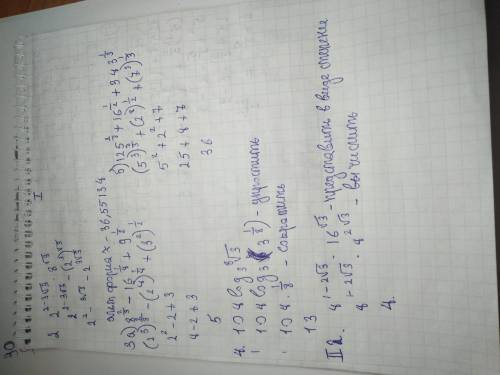 30
I
2^{2-3√3} · 8^{√3}
2^{2-3√3} · (2^3)^{√3}
альт. форма x ~ 36,55134
3a) 8^{2/3} - 16^{1/4} + 9^{1/2}
(2^3)^{2/3} - (2^4)^{1/4} + (3^2)^{1/2}
2^2 - 2 + 3
4 - 2 + 3
5
б) 125^{2/3} + 16^{1/2} + 343^{1/3}
(5^3)^{2/3} + (2^4)^{1/2} + (7^3)^{1/3}
5^2 + 2^2 + 7
25 + 4 + 7
36
4. 104 log_3 \sqrt[8]{3}
104 log_3 (3^{1/8}) - упростить
104 · 1/8 - сократить
13
II 2. 4^{1-2√3} · 16^{√3} - представить в виде степени
4^{1-2√3} · 4^{2√3} - вычислить
4.